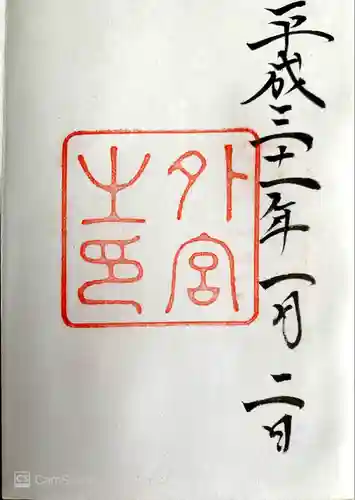 平成三十一年一月二日
外宮
之印
CS CamS